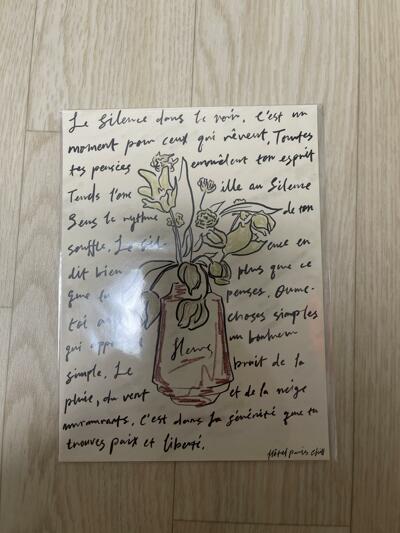 Le Silence dans le noir. C'est un
moment pour ceux qui rêvent, Toutes
tes pensées emmêlent ton esprit
Tends l'ore ille au Silence
Sens le rythme de ton
souffle. Le Sil- ence en
dit bien plus que ce
que tu penses. Ouvre-
toi a choses simples
qui un bonheur
simple. Le bruit de la
fleurs
pluie, du vent et de la neige
murmurants. C'est dans la sérénité que tu
trouves paix et liberté.
Hôtel paris chill